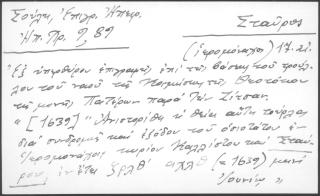 Σούλη, Ἐπιγρ. Ἠπείρ.
Ἠπ. Χρ. 9, 89
Σταῦρος
(ἱερομόναχος) 17. αἰ.
Ἐξ ὑπερθύρου ἐπιγραφῆς ἐπὶ τῆς βάσεως τοῦ τρούλ-
λου τοῦ ναοῦ τῆς Κοιμήσεως τῆς Θεοτόκου
τῆς μονῆς Πατέρων παρὰ τὴν Ζίτσαν.
"[1639] Ἀνιστορίθι κὲ θεία αὕτη τούρλα
διὰ συνδρομῆς καὶ ἐξόδου τοῦ ὁσιοτάτου ἐν
ἱερομονάχοις κυρίου Καλλίστου καὶ Σταύ-
ρου, ἐν ἔτει ζρλθ΄ αχλθ (= 1639) μηνὶ
Ἰουνίῳ "